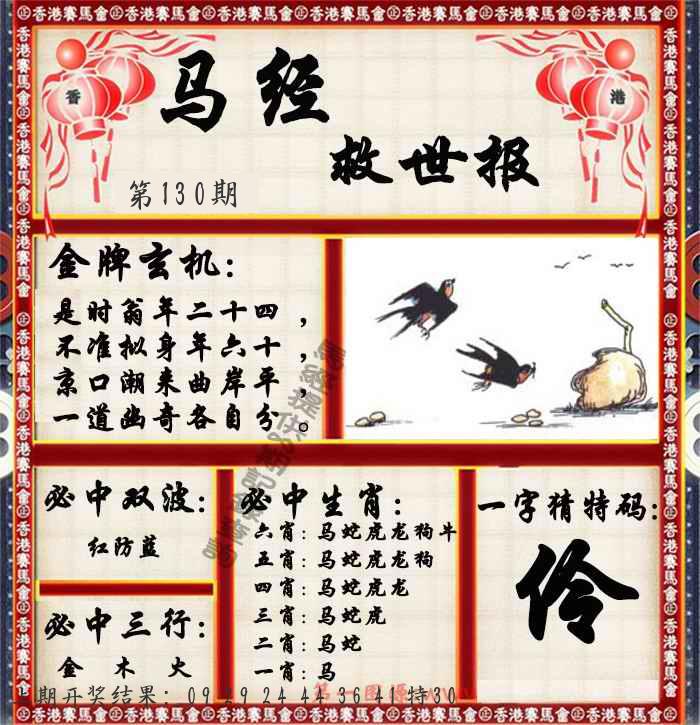 香港賽馬會
香
港
马经
救世报
第130期
金牌玄机:
是时翁年二十四,
不准拟身年六十,
京口潮来曲岸平,
一道幽奇各自分。
必中双波:
红防蓝
必中三行:
金 木 火
必中生肖:
六肖:马蛇虎龙狗牛
五肖:马蛇虎龙狗
四肖:马蛇虎龙
三肖:马蛇虎
二肖:马蛇
一肖:马
一字猜特码:
伶
期开奖结果:09 29 24 44 36 41特30
第一图